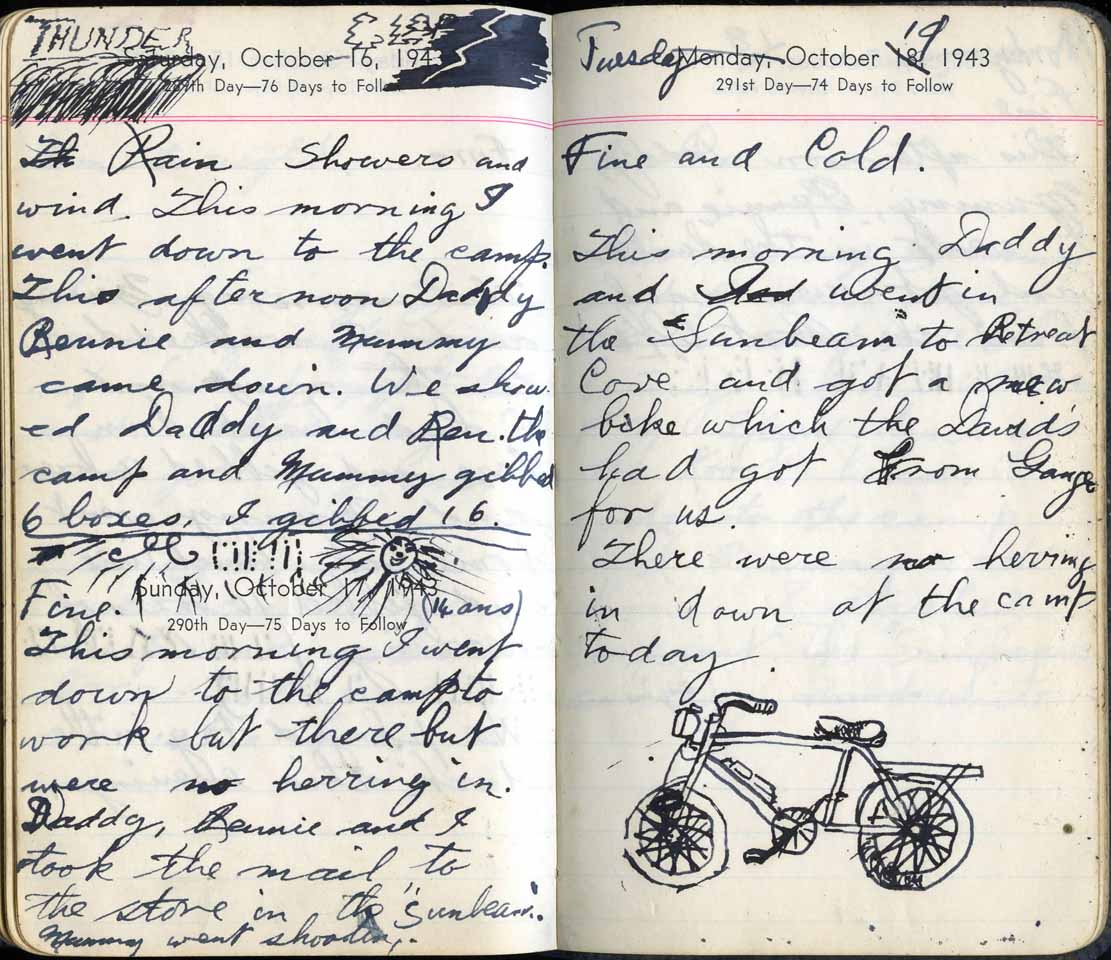 THUNDER
Saturday, October 16, 1943
289th Day—76 Days to Follow
Rain Showers and
wind. This morning I
went down to the camp.
This afternoon Daddy
Rennie and Mummy
came down. We show-
ed Daddy and Ren. the
camp and Mummy gibbed
6 boxes. I gibbed 16.
Sunday, October 17, 1943
Fine. (14 ans)
290th Day—75 Days to Follow
This morning I went
down to the camp to
work but there but
were no herring in.
Daddy, Rennie and I
took the mail to
the store in the "Sunbeam".
Mummy went shooting.
Tuesday Monday, October 18, 19 1943
291st Day—74 Days to Follow
Fine and Cold.
This morning Daddy
and went in
the "Sunbeam" to Retreat
Cove and got a new
bike which the David's
had got from Gange
for us.
There were no herring
in down at the camp
today.